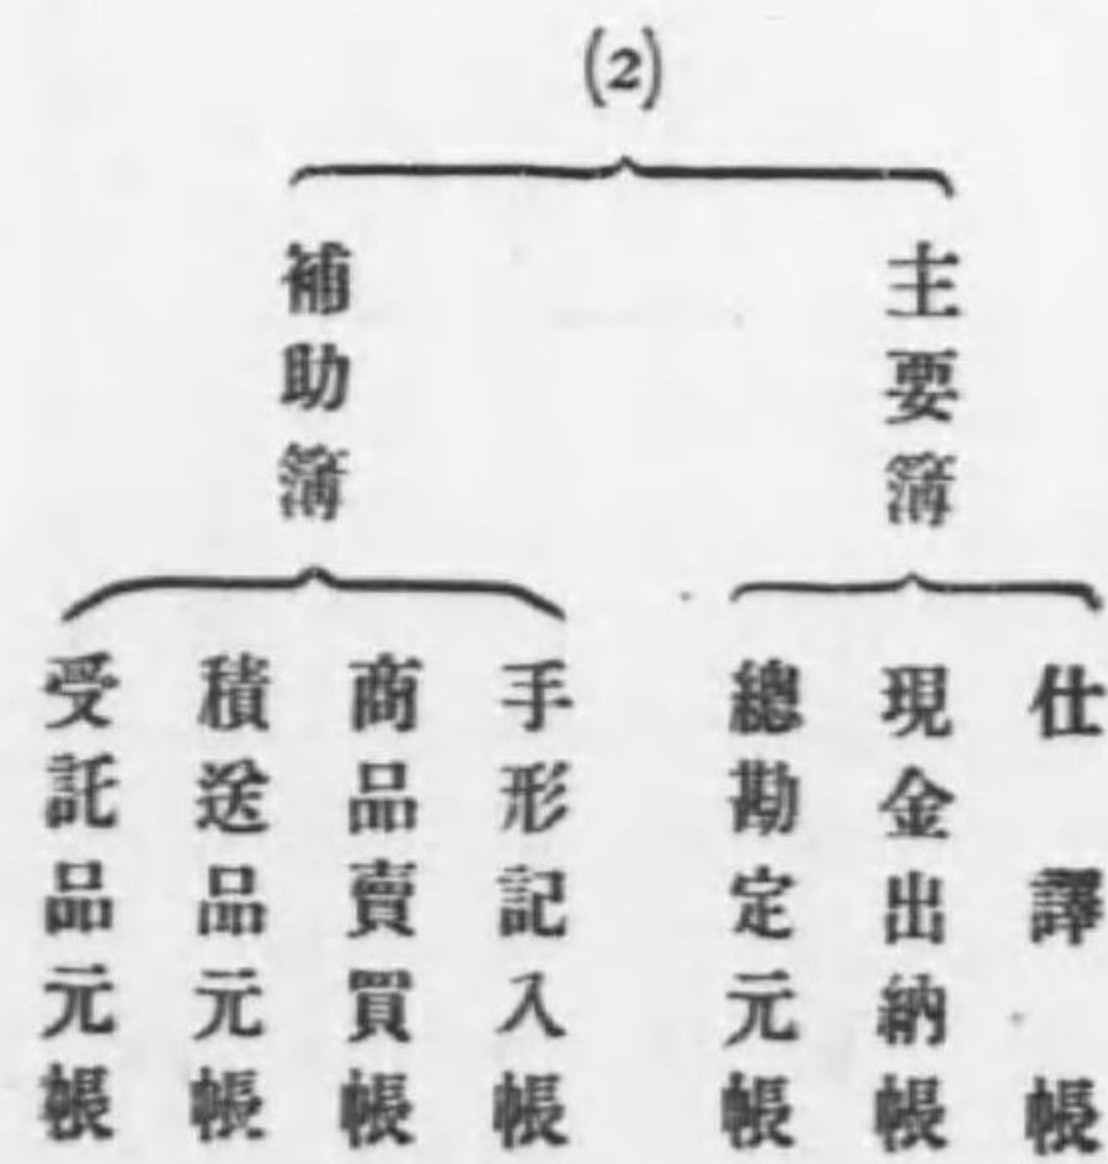 (2)
主要簿
仕譯帳
現金出納帳
總勘定元帳
補助簿
手形記入帳
商品賣買帳
積送品元帳
受託品元帳